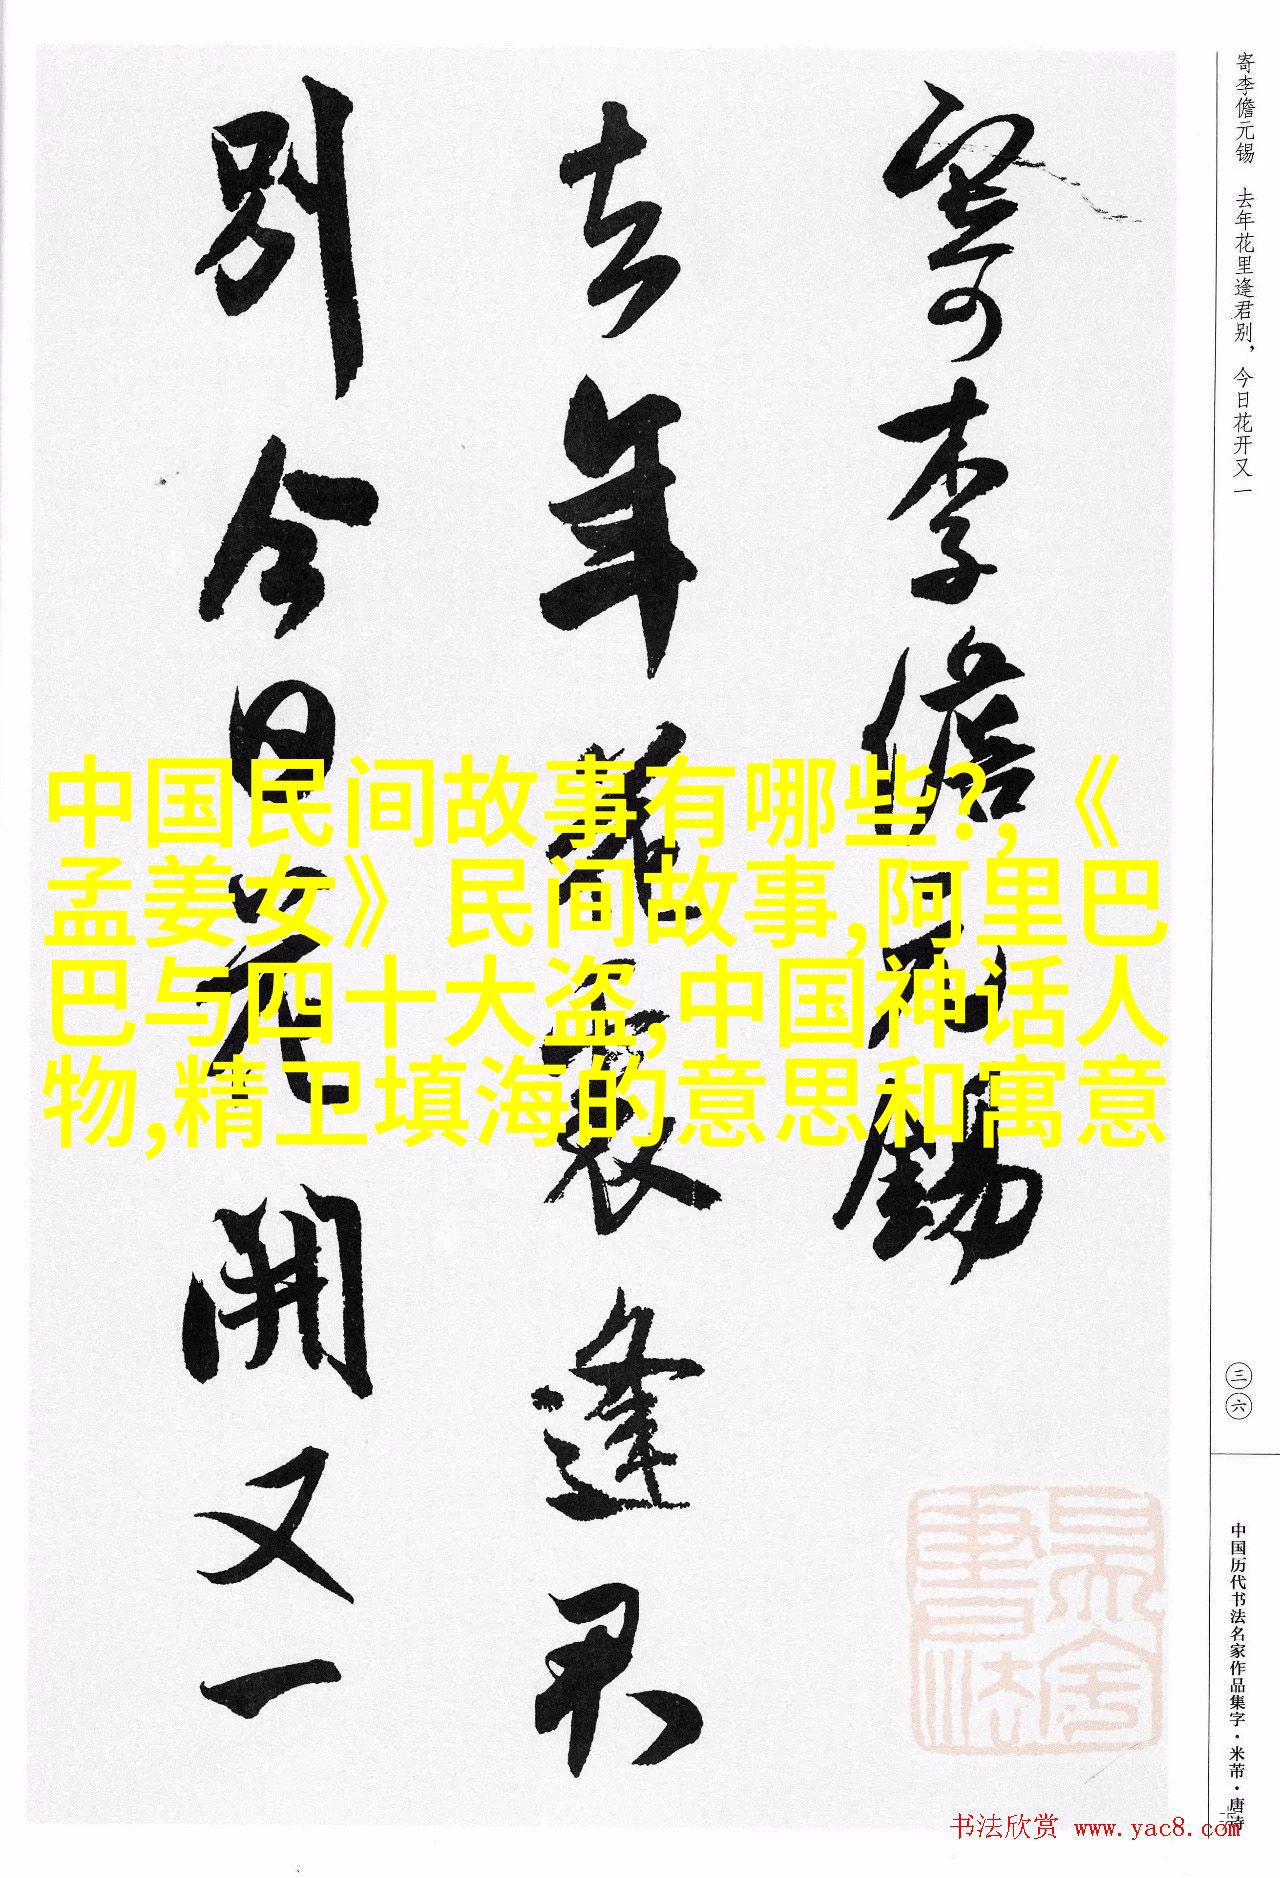 寄李儋元锡　去年花里逢君别，今日花开又一
寄李儋元錫
去年花裏逢君
別今日花開又一
中国民间故事有哪些?,《
孟姜女》民间故事,阿里巴
巴与四十大盗,中国神话人
物,精卫填海的意思和寓意
三六
中国历代书法名家作品集字·米芾·唐诗
书法欣赏 www.yac8.com